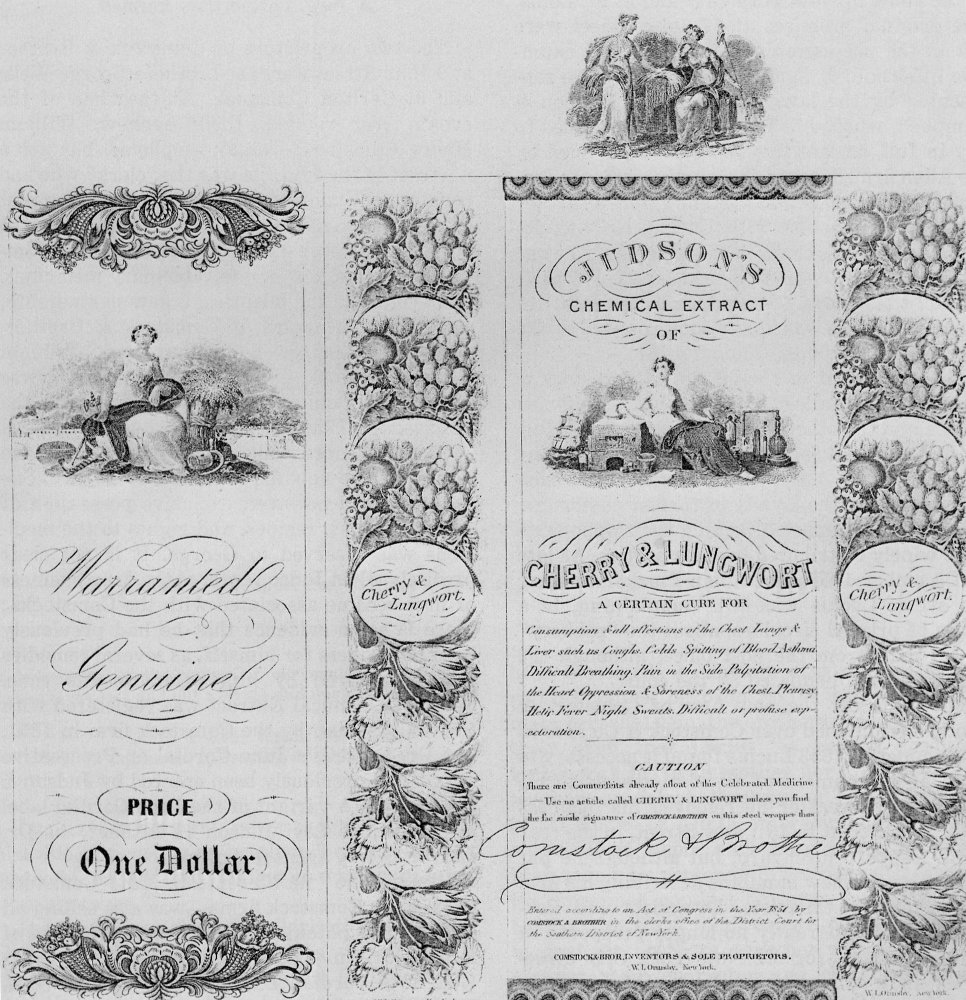 Warranted
Genuine
PRICE
One Dollar
Cherry &
Lungwort.
JUDSON'S
CHEMICAL EXTRACT
OF
CHERRY & LUNGWORT
A CERTAIN CURE FOR
Consumption & all affections of the Chest Lungs &
Liver such us Coughs. Colds Spitting of Blood. Asthma
Difficult Breathing. Pain in the Side Palpitation of
the Heart Oppression & Soreness of the Chest. Pleuresy.
Hetic Fever Night Sweats. Difficult or profuse exp-
ectoration.
CAUTION
There are Counterfeits already afloat of this Celebrated Medicine
— Use no article called CHERRY & LUNGWORT unless you find
the fac simile signature of COMSTOCK & BROTHER on this steel wrapper thus
Comstock & Brother
Entered according to an Act of Congress in the Year 1851 by
COMSTOCK & BROTHER in the clerks office of the District Court for
the Southern District of New York.
COMSTOCK & BROR, INVENTORS & SOLE PROPRIETORS.
W. L. Ormsby, New York.
Cherry &
Lungwort.
W. L. Ormsby, New York.